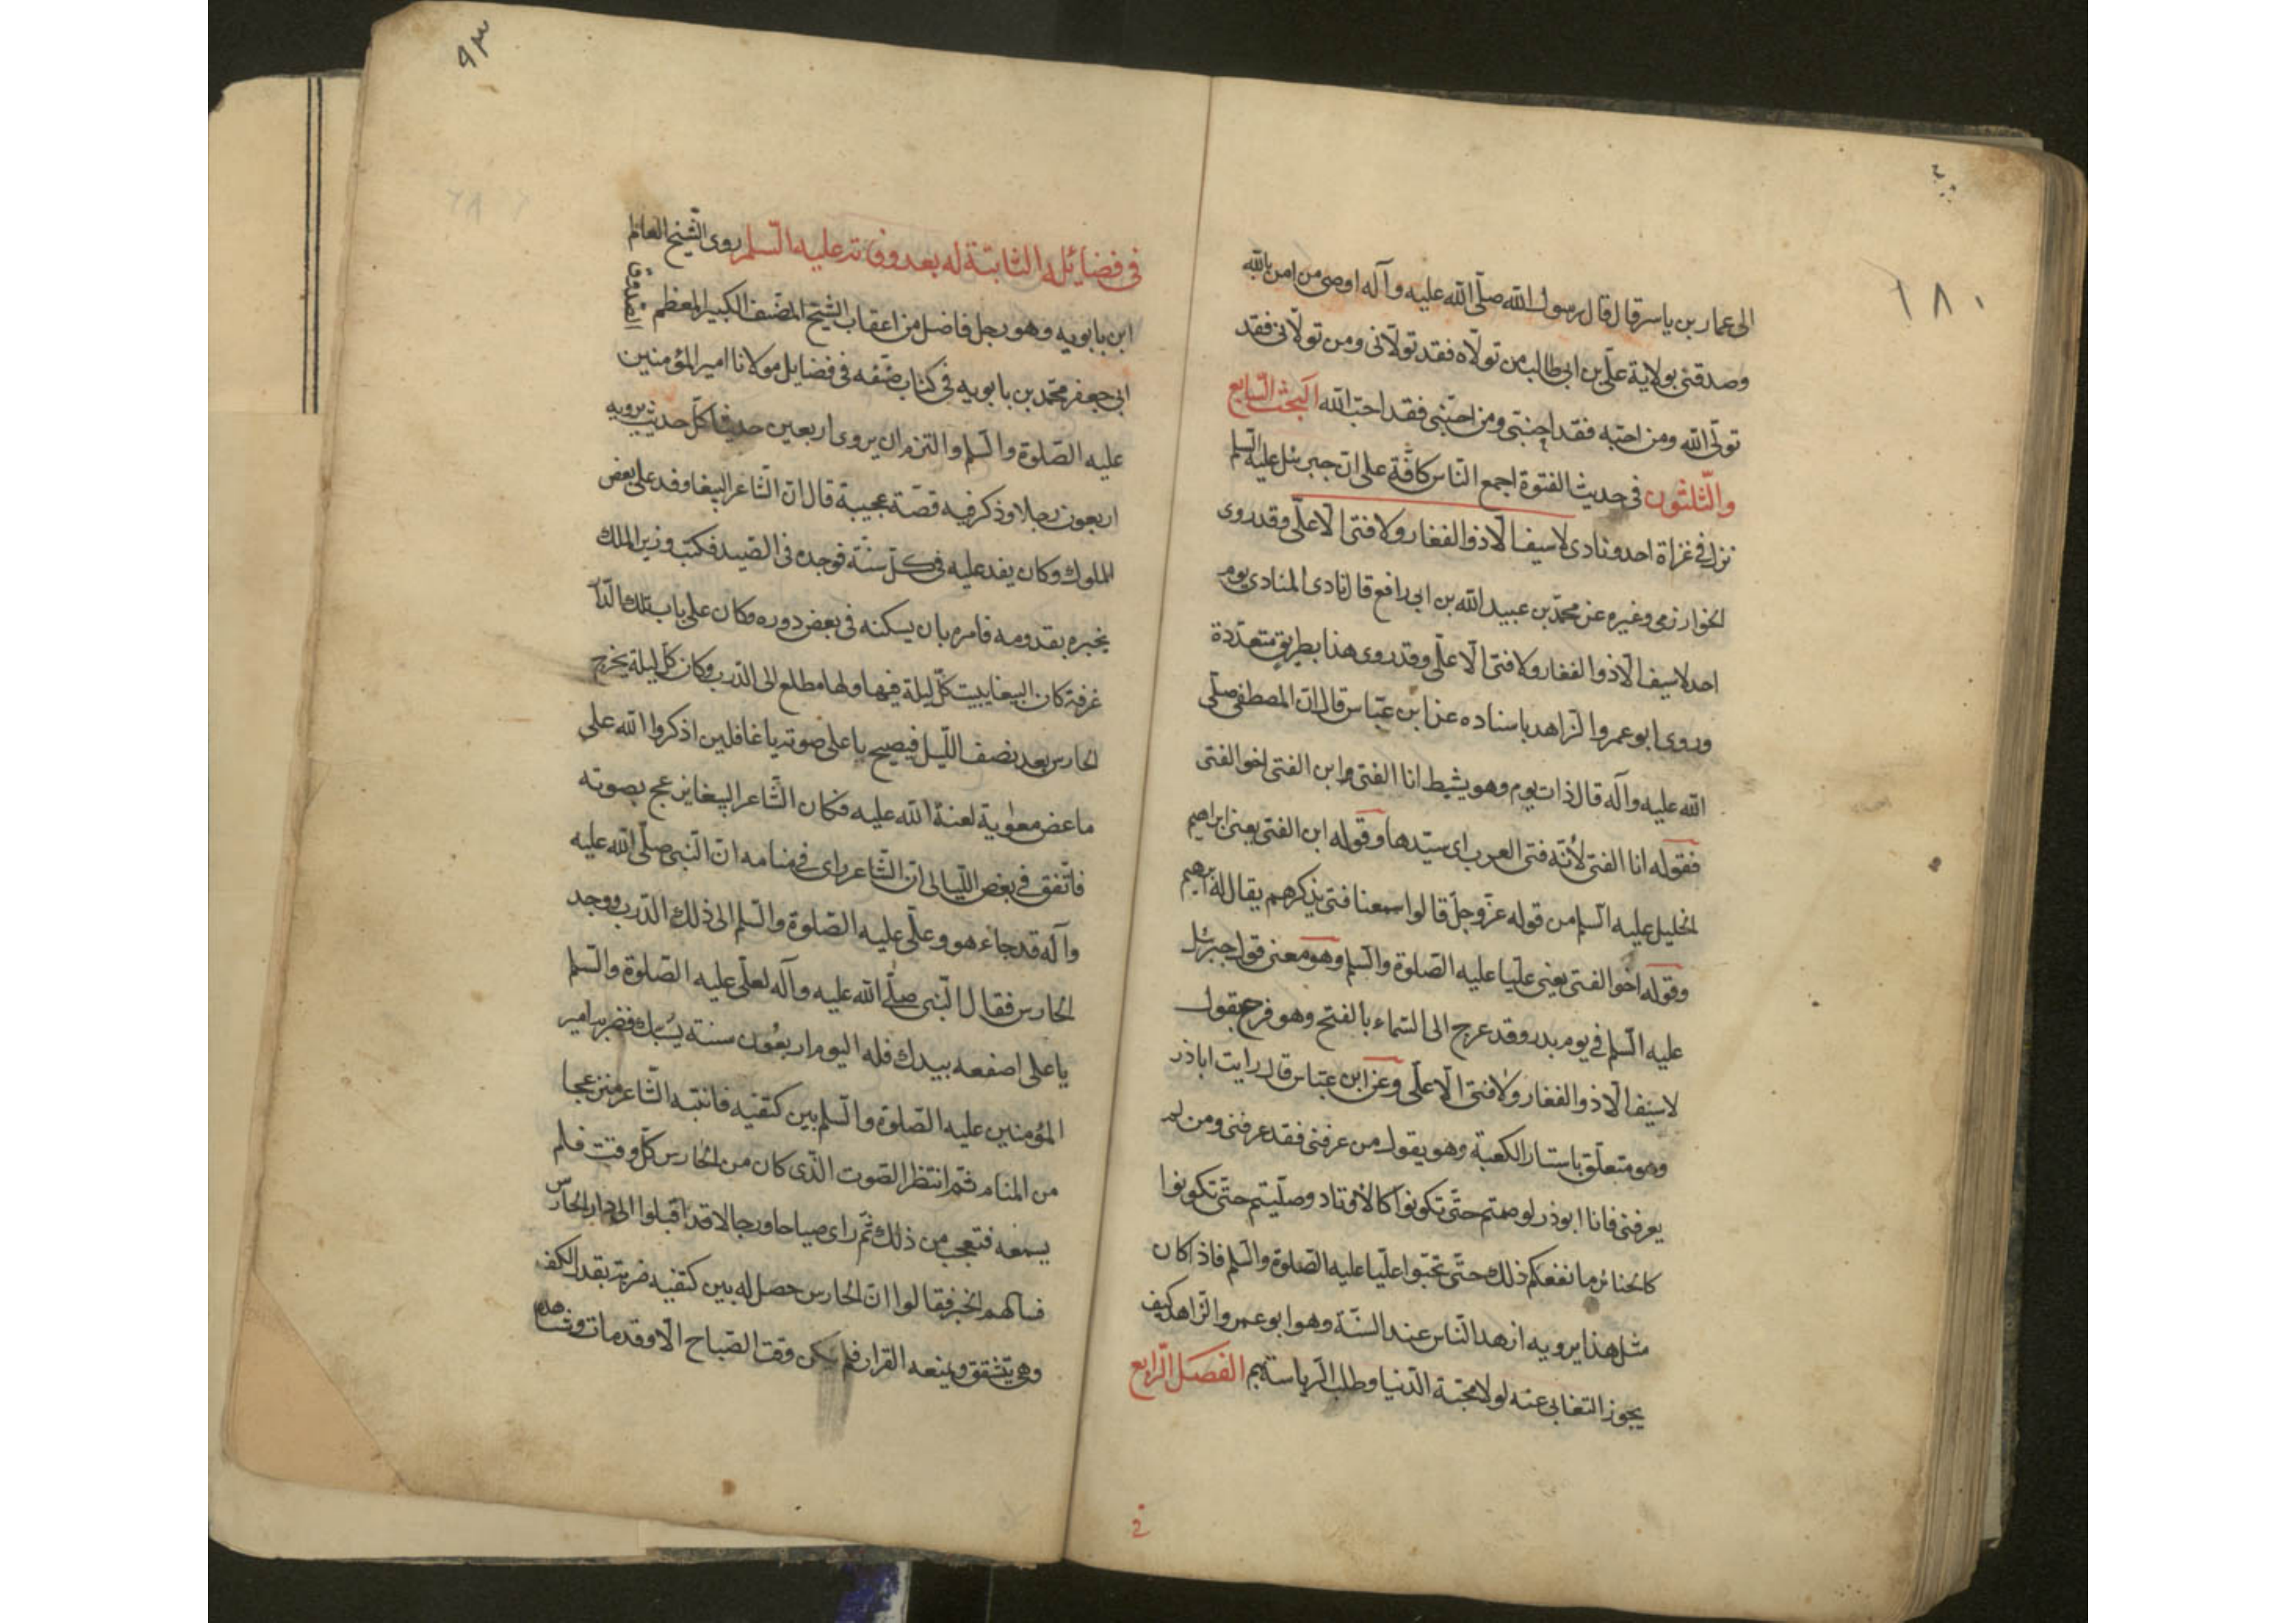 ١٨٠
الى عمار بن ياسر قال قال رسول الله صلّى الله عليه وآله اوصى من امن بالله
وصدقنى بولاية علّى بن ابى طالب من تولّاه فقد تولّانى ومن تولّانى فقد
تولّى الله ومن احبّه فقد احبّنى ومن احبّنى فقد احبّ الله البحث السّابع
والثّلثون فى حديث الفتوة اجمع النّاس كافّة على انّ جبرئيل عليه السّلم
نزل فى غزاة احد ونادى لا سيف الّا ذو الفقار ولا فتى الّا علّى وقد روى
الخوارزمى وغيره عن محمّد بن عبيد الله بن ابى رافع قال نادى المنادى يوم
احد لا سيف الّا ذو الفقار ولا فتى الّا علّى وقد روى هذا بطريق متعدّدة
وروى ابو عمرو الزاهد باسناده عن ابن عبّاس قال انّ المصطفى صلّى
الله عليه وآله قال ذات يوم وهو يشيط انا الفتى وابن الفتى اخو الفتى
فقوله انا الفتى لأنّه فتى العرب اى سيّدها وقوله ابن الفتى يعنى ابراهيم
الخليل عليه السّلم من قوله عزّ وجلّ قالوا سمعنا فتى يذكرهم يقال له ابرهيم
وقوله اخو الفتى يعنى عليّا عليه الصّلوة والسّلم وهو معنى قول جبرئيل
عليه السّلم فى يوم بدر وقد عرج الى السّماء بالفتح وهو فرح يقول
لا سيف الّا ذو الفقار ولا فتى الّا علّى وعن ابن عبّاس قال رايت اباذر
وهو متعلّق باستار الكعبة وهو يقول من عرفنى فقد عرفنى ومن لم
يعرفنى فانا ابوذر لو صمتم حتّى تكونوا كالأوتاد وصلّيتم حتّى تكونوا
كالحنائر ما نفعكم ذلك حتّى تحبّوا عليّا عليه الصّلوة والسّلم فاذا كان
مثل هذا يرويه ازهد النّاس عند السّنّة وهو ابو عمرو الزّاهد كيف
يجوز التغابى عنه لولا محبّة الدّنيا وطلب الرّياسة الفصل الرّابع
فى
٩٣
فى فضائله الثابتة له بعد وفاته عليه السّلم روى الشّيخ العالم
الصدوق
ابن بابويه وهو رجل فاضل من اعقاب الشّيخ المصنّف الكبير المعظم
ابى جعفر محمّد بن بابويه فى كتاب صنّفه فى فضايل مولانا امير المؤمنين
عليه الصّلوة والسّلم والتزم ان يروى اربعين حديثا كلّ حديث يرويه
اربعون رجلا وذكر فيه قصّة عجيبة قال انّ الشّاعر الببغا وفد على بعض
الملوك وكان يفد عليه فى كلّ سنّة فوجده فى الصّيد فكتب وزير الملك
يخبره بقدومه فامره بان يسكنه فى بعض دوره وكان على باب تلك الدّار
غرفة كان الببغا يبيت كلّ ليلة فيها ولها مطلع الى الدّرب وكان كلّ ليلة يخرج
الحارس بعد نصف اللّيل فيصيح باعلى صوته يا غافلين اذكروا الله على
ما عض معوية لعنة الله عليه فكان الشّاعر الببغا ينزعج بصوته
فاتّفق فى بعض اللّيالى انّ الشّاعر راى فى منامه انّ النّبى صلّى الله عليه
وآله قد جاء هو وعلّى عليه الصّلوة والسّلم الى ذلك الدّرب ووجد
الحارس فقال النّبى صلّى الله عليه وآله لعلّى عليه الصّلوة والسّلم
يا على اصفعه بيدك فله اليوم اربعون سنة يسبّك فضربه امير
المؤمنين عليه الصّلوة والسّلم بين كتفيه فانتبه الشّاعر منزعجا
من المنام ثم انتظر الصّوت الّذى كان من الحارس كلّ وقت فلم
يسمعه فتعجب من ذلك ثمّ راى صياحا ورجالا قد اقبلوا الى دار الحارس
فسالهم الخبر فقالوا انّ الحارس حصل له بين كتفيه ضربة بقدر الكف
وهى تتشقق ويمنعه القرار فلم يكن وقت الصّباح الّا وقد مات وشاهده